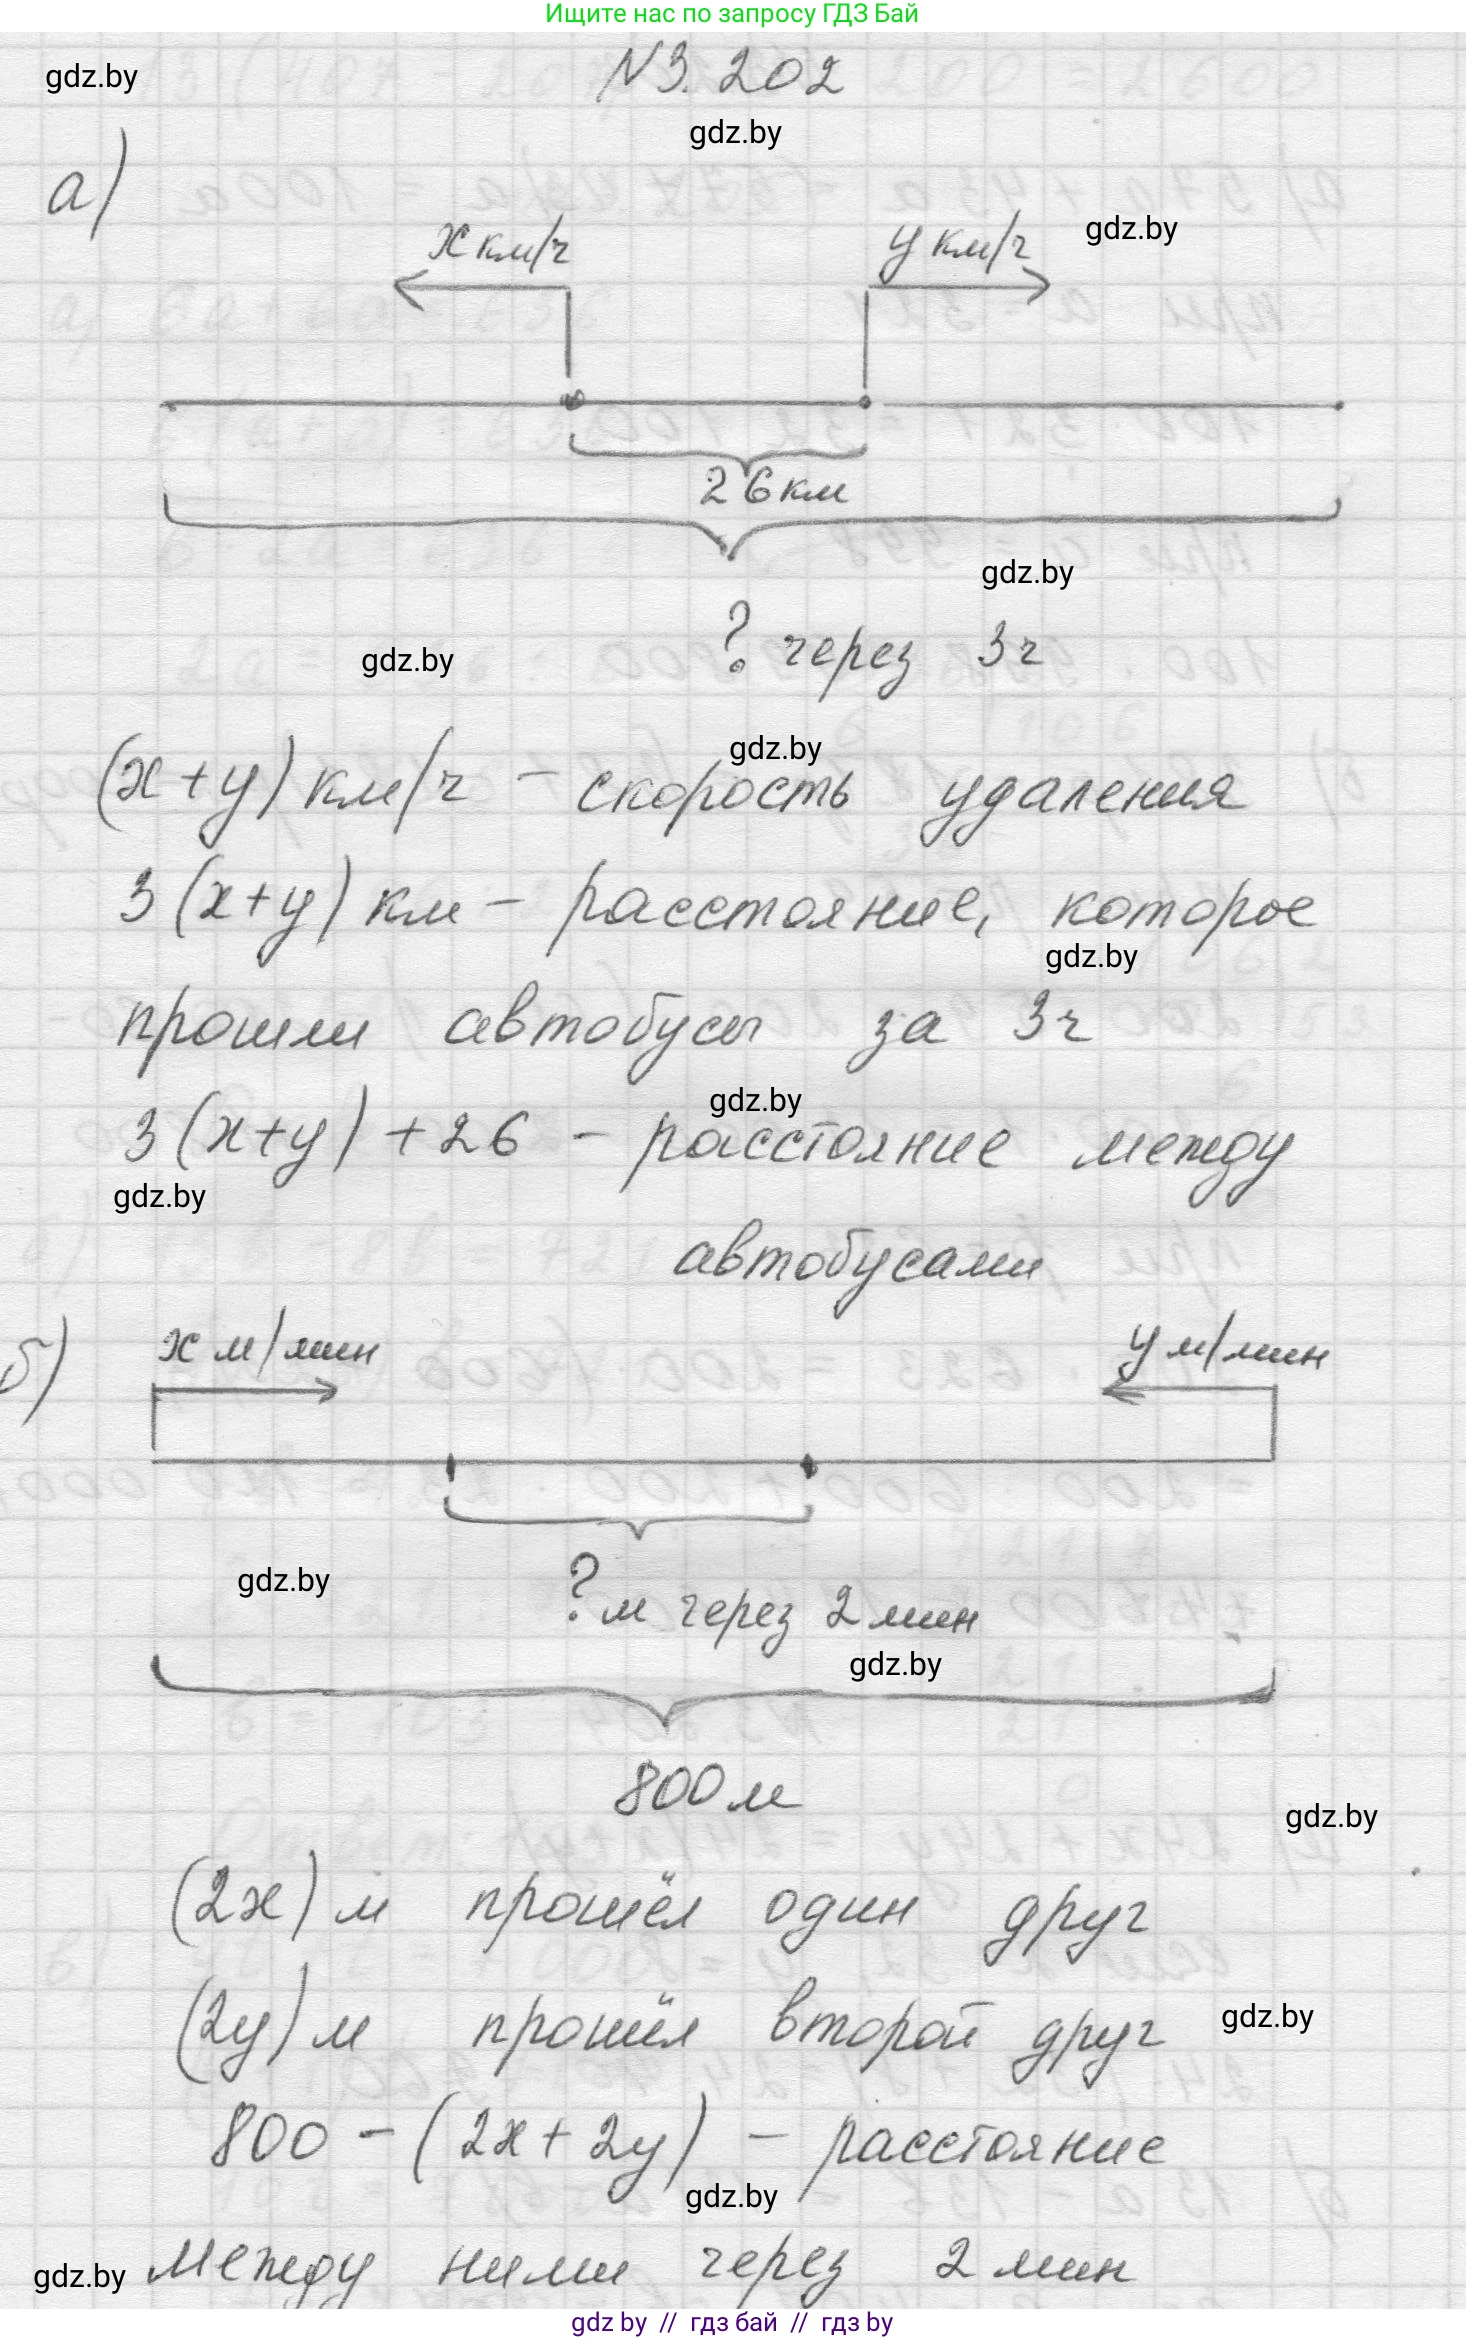 Ищите нас по запросу ГДЗ Бай
gdz.by
N3.202
gdz.by
а)
x км/ч
y км/ч
gdz.by
26 км
gdz.by
? через 3ч
gdz.by
gdz.by
(x+y) км/ч - скорость удаления
3(x+y) км - расстояние, которое
gdz.by
прошли автобусы за 3ч
gdz.by
3(x+y)+26 - расстояние между
gdz.by
автобусами
б)
x м/мин
y м/мин
gdz.by
? м через 2 мин
gdz.by
800 м
gdz.by
(2x) м прошёл один друг
(2y) м прошёл второй друг
gdz.by
800 - (2x + 2y) - расстояние
gdz.by
между ними через 2 мин
gdz.by
gdz by // гдз бай // гдз by